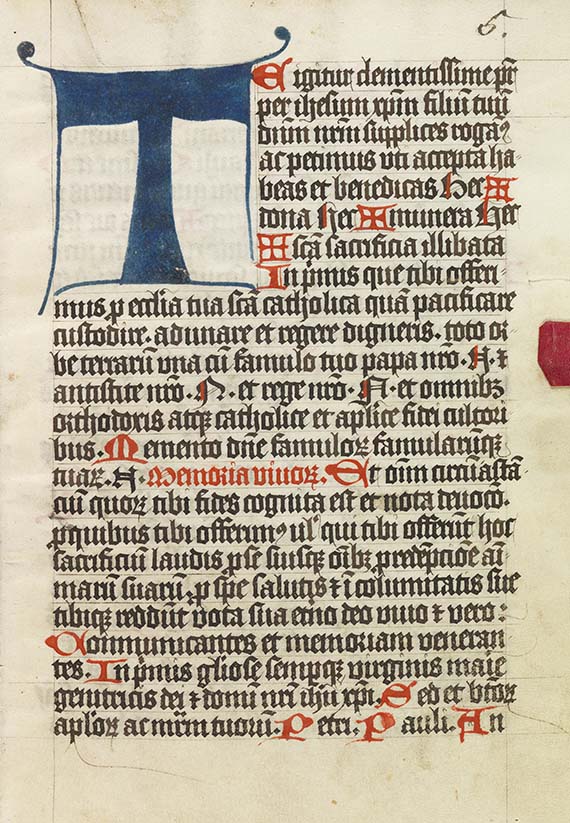 6.
TE igitur clementissime pr̄
per ihesum xp̄m filiū tuū
dn̄m nr̄m supplices rogaꝰ
ac petimus vti accepta ha-
beas et benedicas hec ✠
dona hec ✠ munera hec
✠ scā sacrificia illibata
In pͥmis que tibi offeri-
mus ꝓ ecclīa tua scā catholica quā pacificare
custodire. adunare et regere digneris. toto or
be terrarū vna cū famulo tuo papa nr̄o. N. ⁊
antistite nr̄o. N. et rege nr̄o. N. et omnibꝫ
orthodoxis atqꝫ catholice et aplice fidei cultori
bus. Memento dn̄e famuloꝝ famularūqꝫ
tuaꝝ. N. Memoria viuoꝝ. Et oīm circūastā-
ciū quoꝝ tibi fides cognita est et nota deuocō.
ꝓ quibus tibi offerimꝰ ul' qui tibi offerūt hoc
sacrificiū laudis ꝓ se suisqꝫ oībꝫ ꝓ redēpcōne aī-
marū suarū. ꝓ spe salutis ⁊ īcolumitatis sue
tibiqꝫ reddūt vota sua et̄no deo viuo ⁊ vero:
Communicantes et memoriam veneran
tes. In pͥmis gl̄iose sempqꝫ virginis maie
genitricis dei ⁊ domī nr̄i ih̄u xp̄i. Sed et btōꝝ
aplōꝝ ac mr̄m tuorū. Petri. Pauli. An